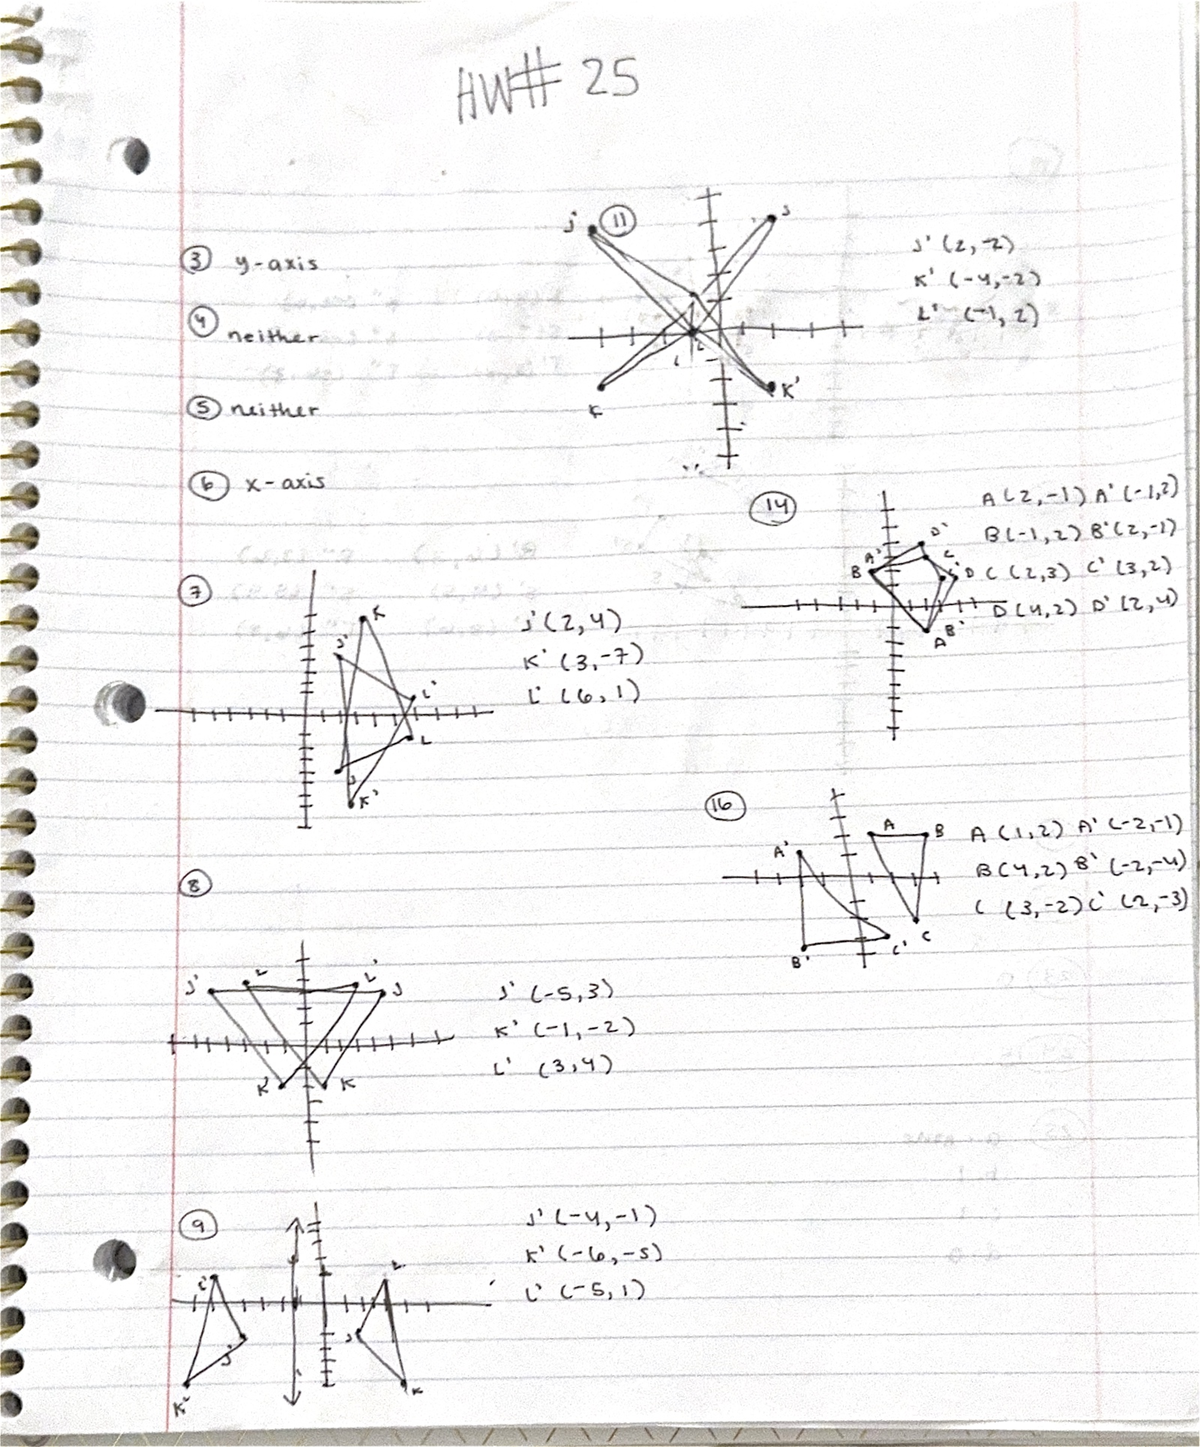 HW# 25
③ y-axis
④ neither
⑤ neither
⑥ x-axis
⑪
J'
J
K
K'
L
L
J' (2,-2)
K' (-4,-2)
L' (-1, 2)
⑭
A (2,-1) A' (-1,2)
B (-1,2) B' (2,-1)
C (2,3) C' (3,2)
D (4,2) D' (2,4)
D'
A'
C
B
C'
D
B'
A
⑦
K
J'
L'
L
J
K'
J' (2,4)
K' (3,-7)
L' (6,1)
⑯
A
B
A'
B'
C'
C
A (1,2) A' (-2,-1)
B (4,2) B' (-2,-4)
C (3,-2) C' (2,-3)
⑧
J'
L
L'
J
K'
K
J' (-5,3)
K' (-1,-2)
L' (3,4)
⑨
L'
L
J'
J
K'
K
J' (-4,-1)
K' (-6,-5)
L' (-5,1)